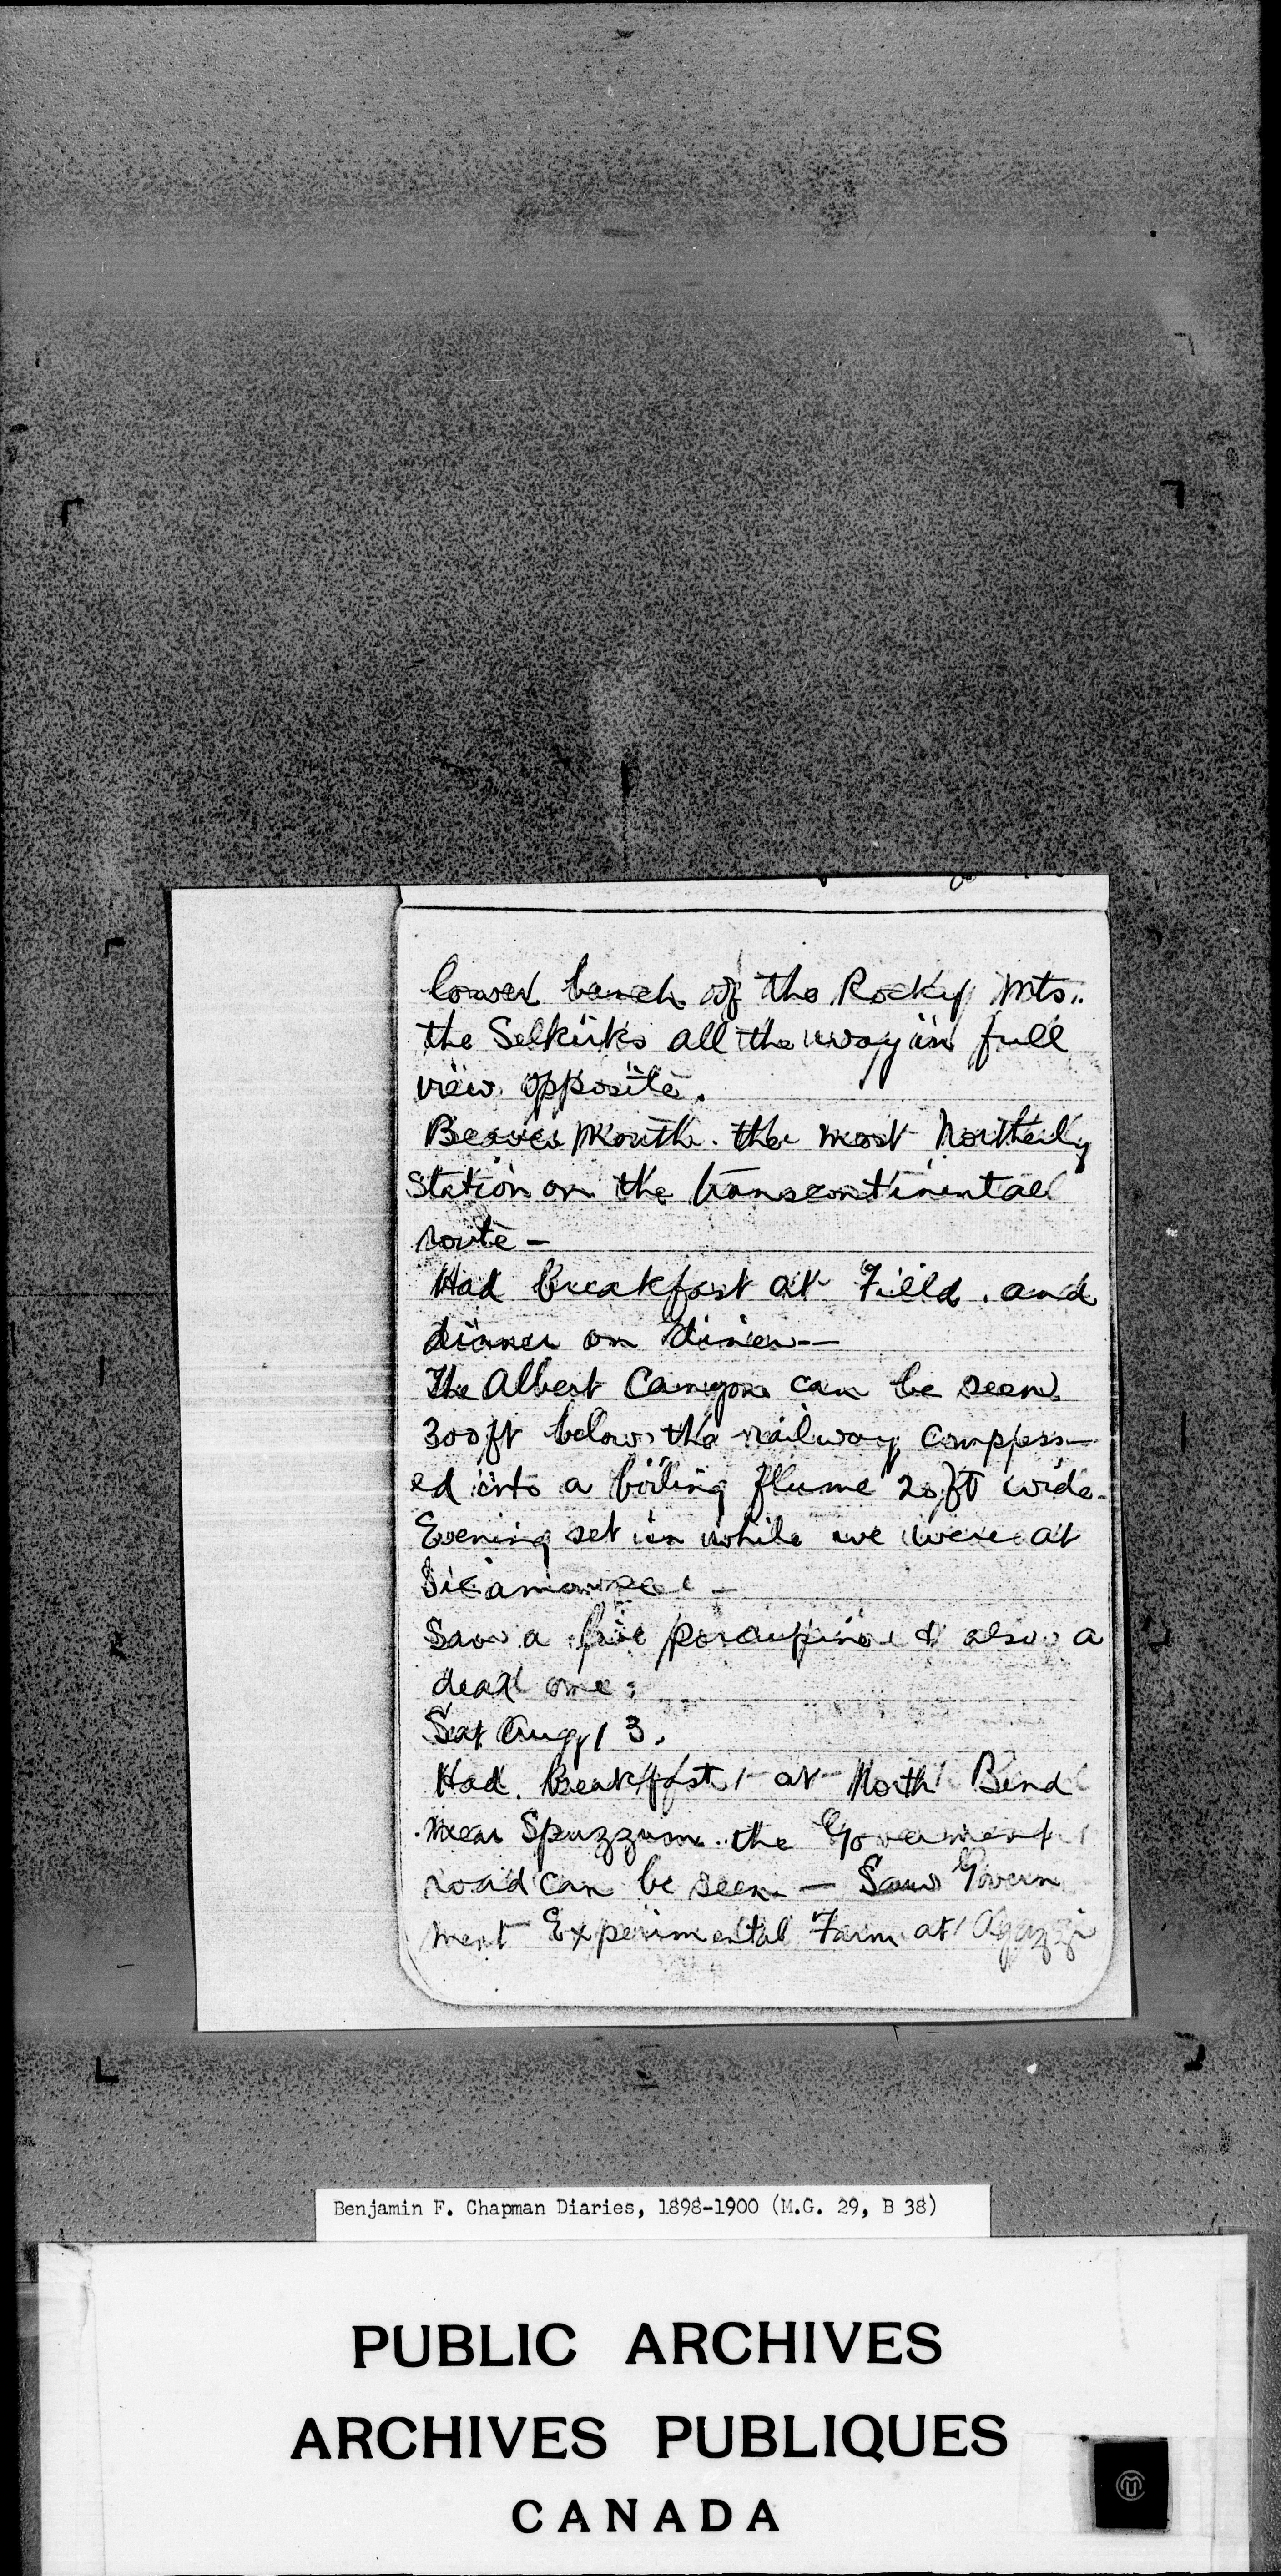 lower bench of the Rocky Mts..
the Selkirks all the way in full
view opposite.
Beaver Mouth. the most Northerly
station on the transcontinental
route -
Had breakfast at Field. and
dinner on diner --
The Albert Canyon can be seen
300 ft below the railway compress-
ed into a boiling flume 20 ft wide.
Evening set in while we were at
Sicamouse -
Saw a live porcupine & also a
dead one.
Sat Aug 13.
Had Breakfast at North Bend
near Spuzzum. the Government
road can be seen - Saw Govern
ment Experimental Farm at Agazzi
Benjamin F. Chapman Diaries, 1898-1900 (M.G. 29, B 38)
PUBLIC ARCHIVES
ARCHIVES PUBLIQUES
CANADA